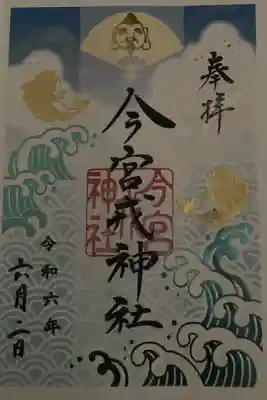 奉拝
今宮戎神社
今宮
神社
令和六年
六月一日